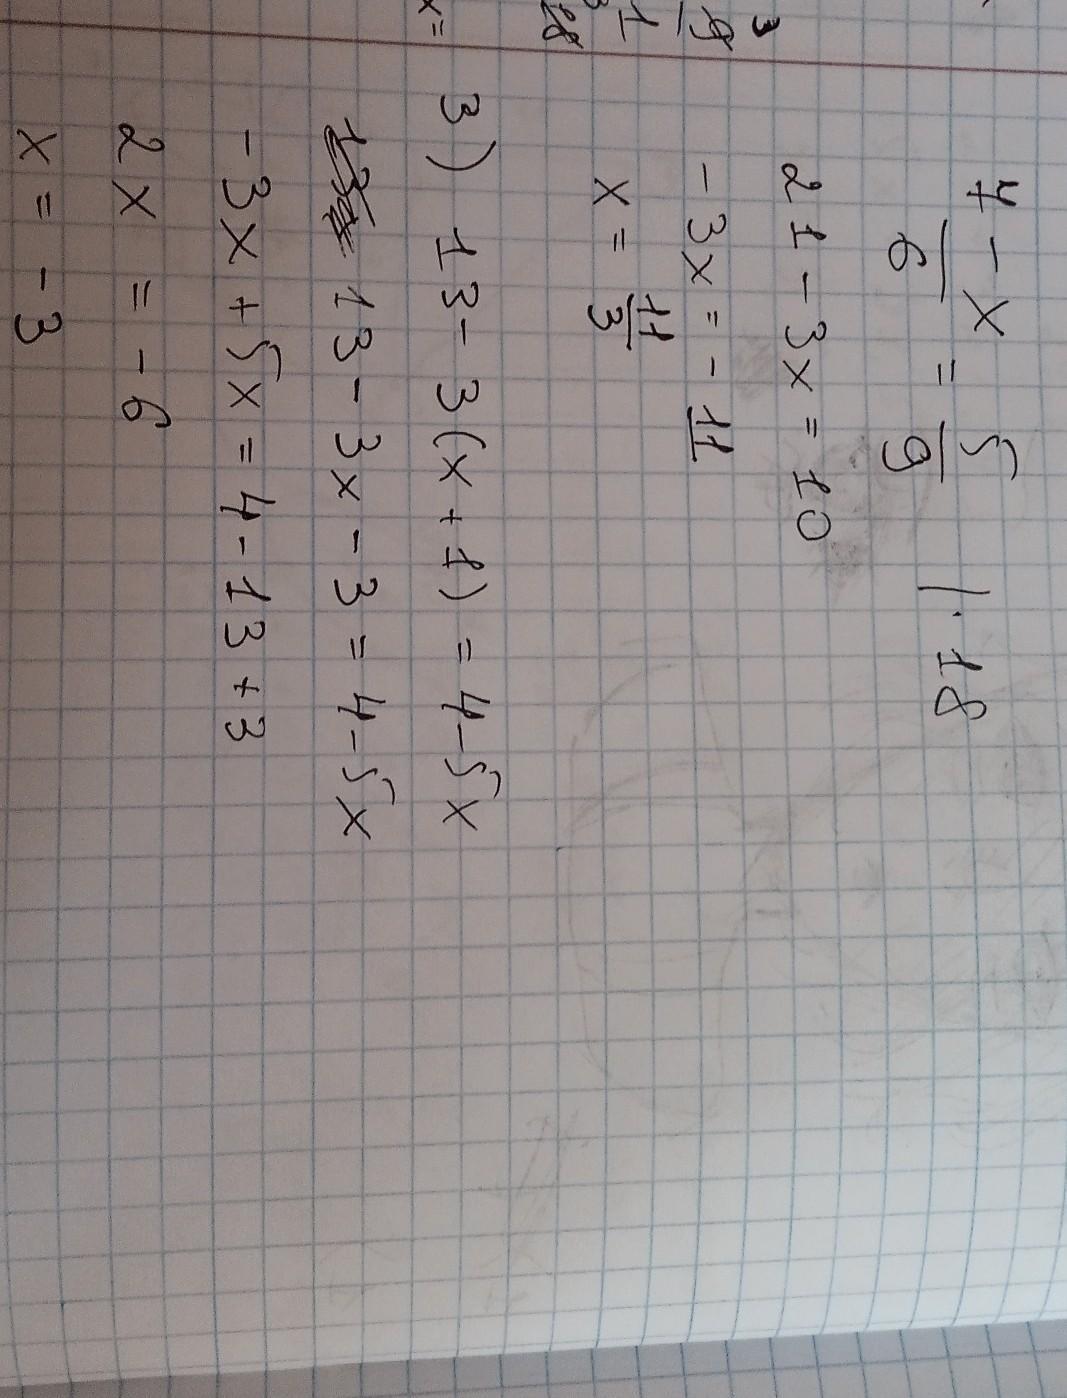 (7-x)/6 = 5/9 |·18
21-3x=10
-3x=-11
x=11/3
3) 13-3(x+1)=4-5x
13-3x-3=4-5x
-3x+5x=4-13+3
2x=-6
x=-3